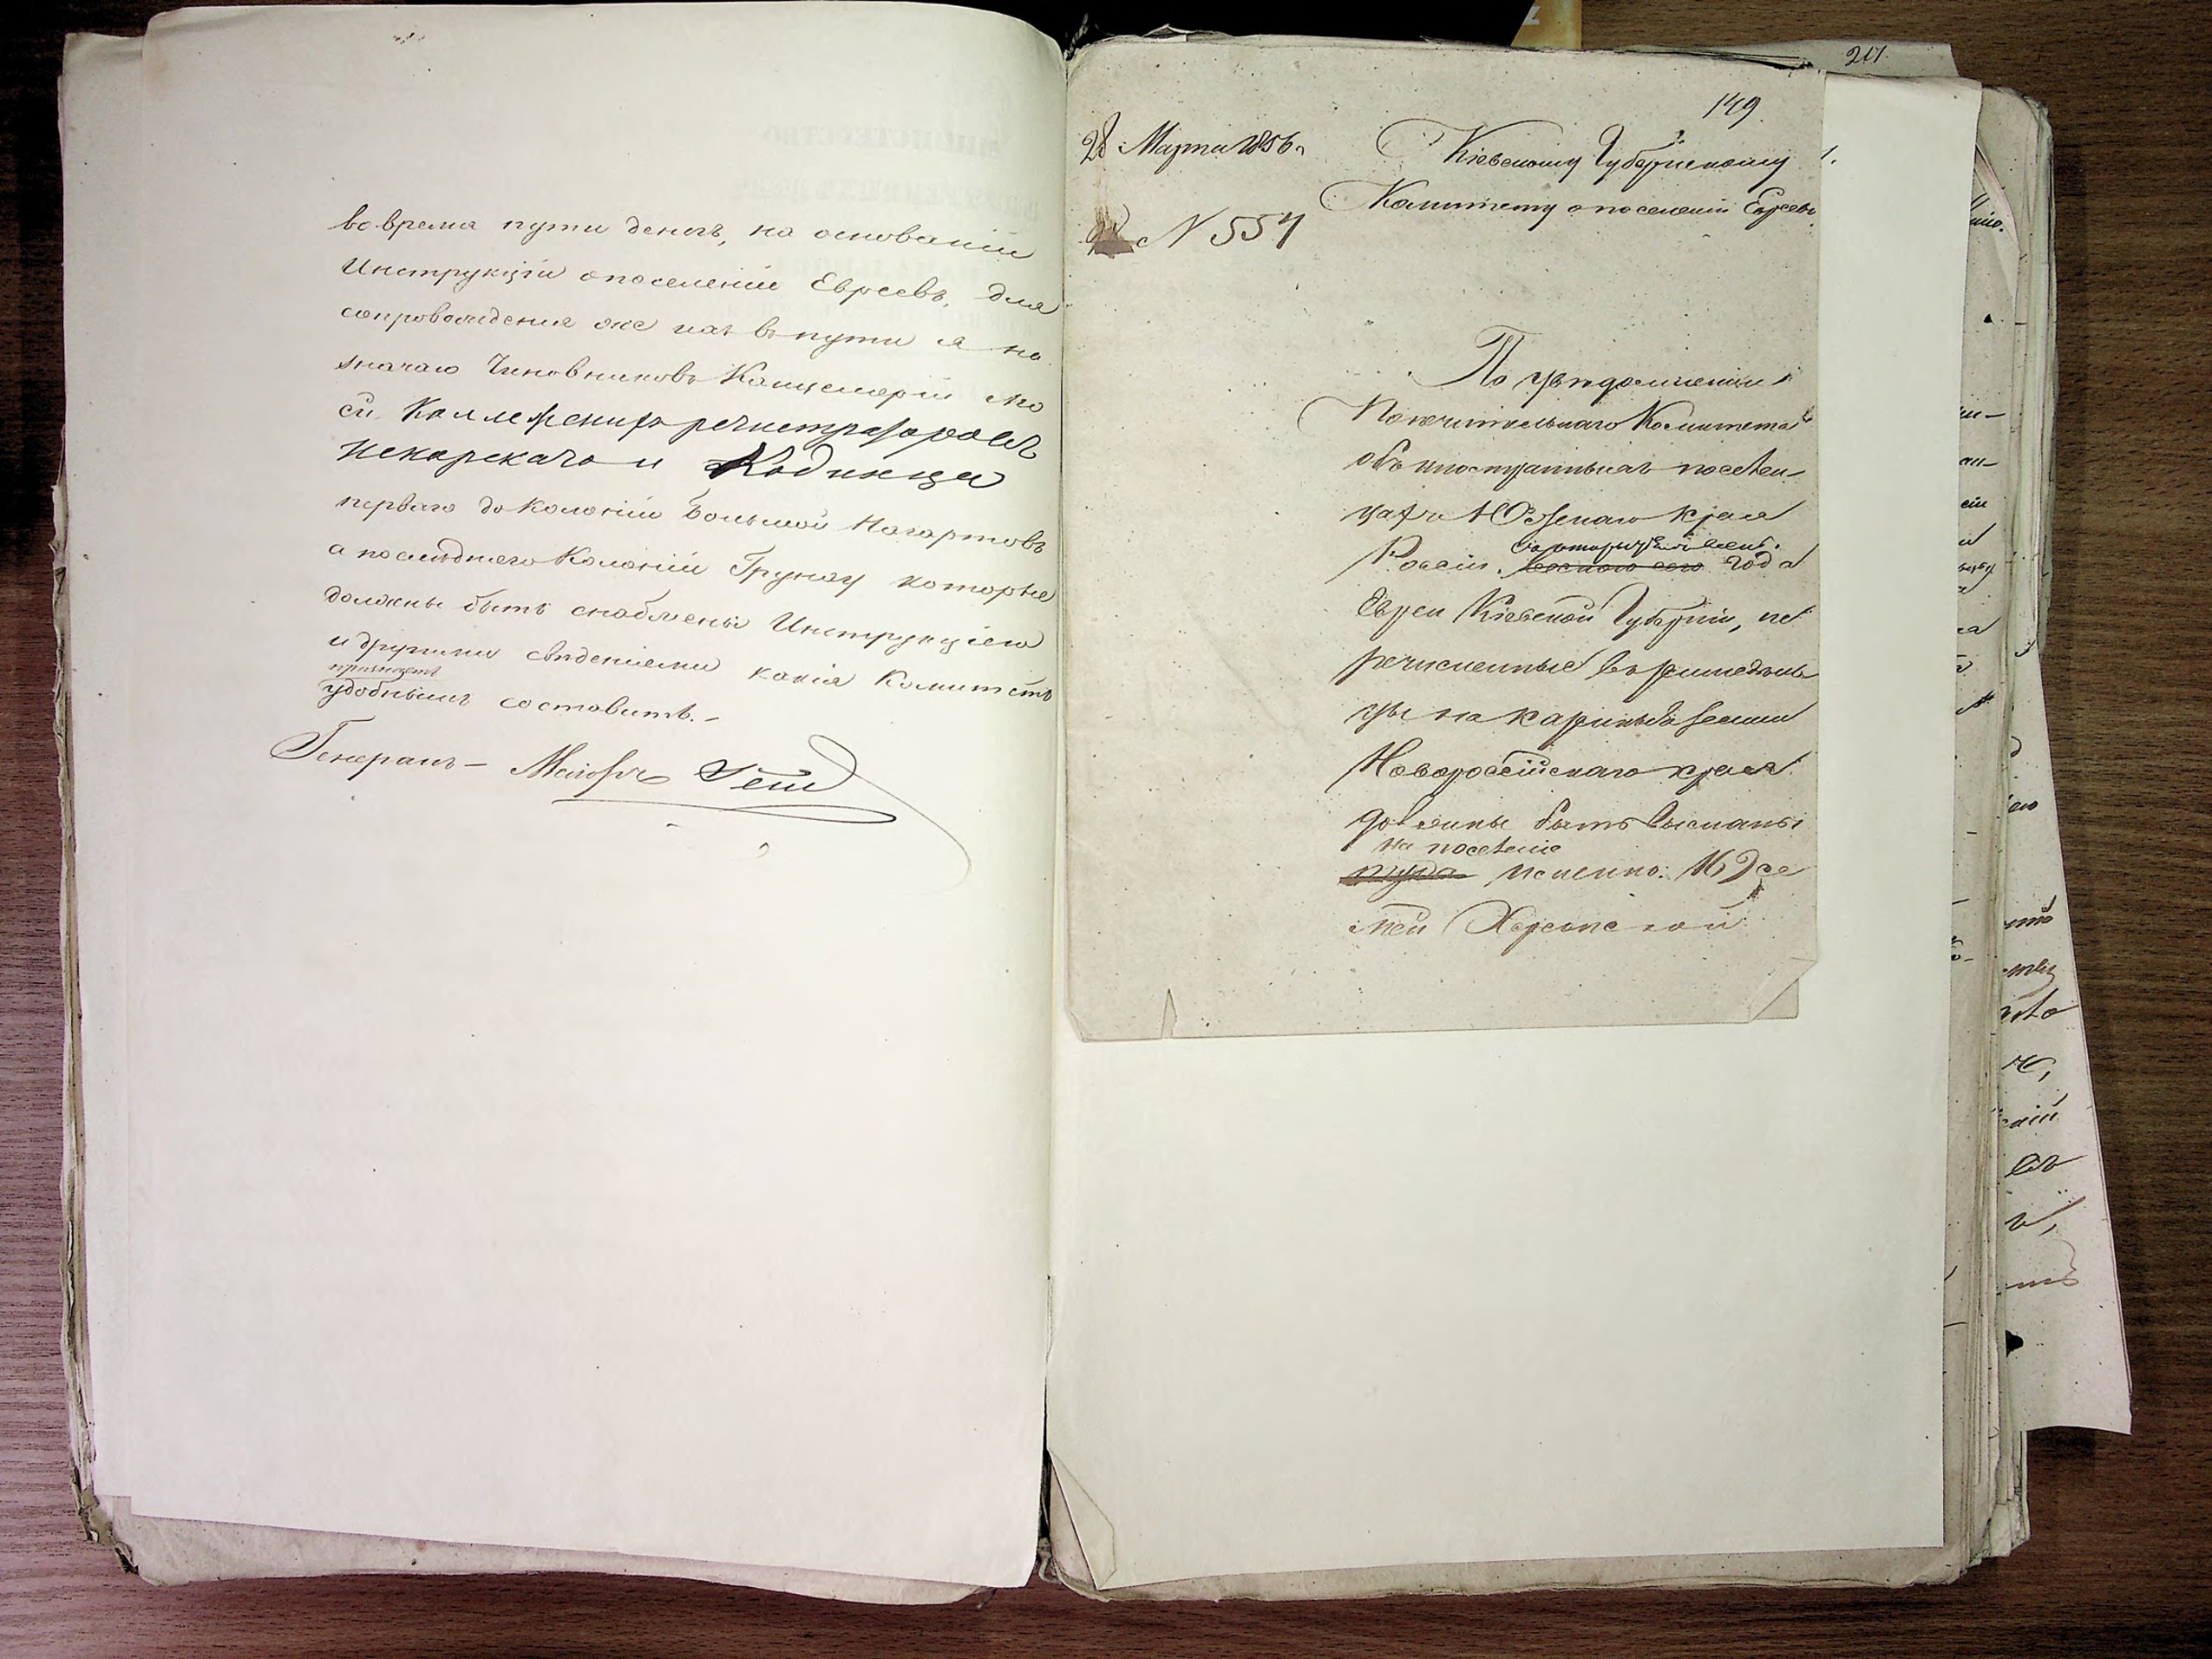 во время пути денегъ, на основаніи
Инструкціи о поселеніи Евреевъ, для
сопровожденія же ихъ въ пути я на
значаю Чиновниковъ Канцеляріи Мо
ей Коллежскихъ регистраторовъ
Пекарскаго и Кодинца
перваго до Колоніи Большой Нагартовъ
а последняго Колоніи Грунау которые
должны быть снабжены Инструкціею
и другими свѣденіями какія Комитетъ
признаетъ
удобнымъ составить.-
Генералъ-Маіоръ
211.
149
28 Марта 1856 г.
Кіевскому Губернскому
Комитету о поселеніи Евреевъ
№ 557
По увѣдомленію
Попечительнаго Комитета
объ иностранныхъ поселен-
цахъ Южнаго края
Россіи, года
Евреи Кіевской Губерніи, пе
речисленные въ земледѣль
цы на казенныя земли
Новороссійскаго края
должны быть высланы
на поселеніе
туда именно: 16 се
мей Херсонской